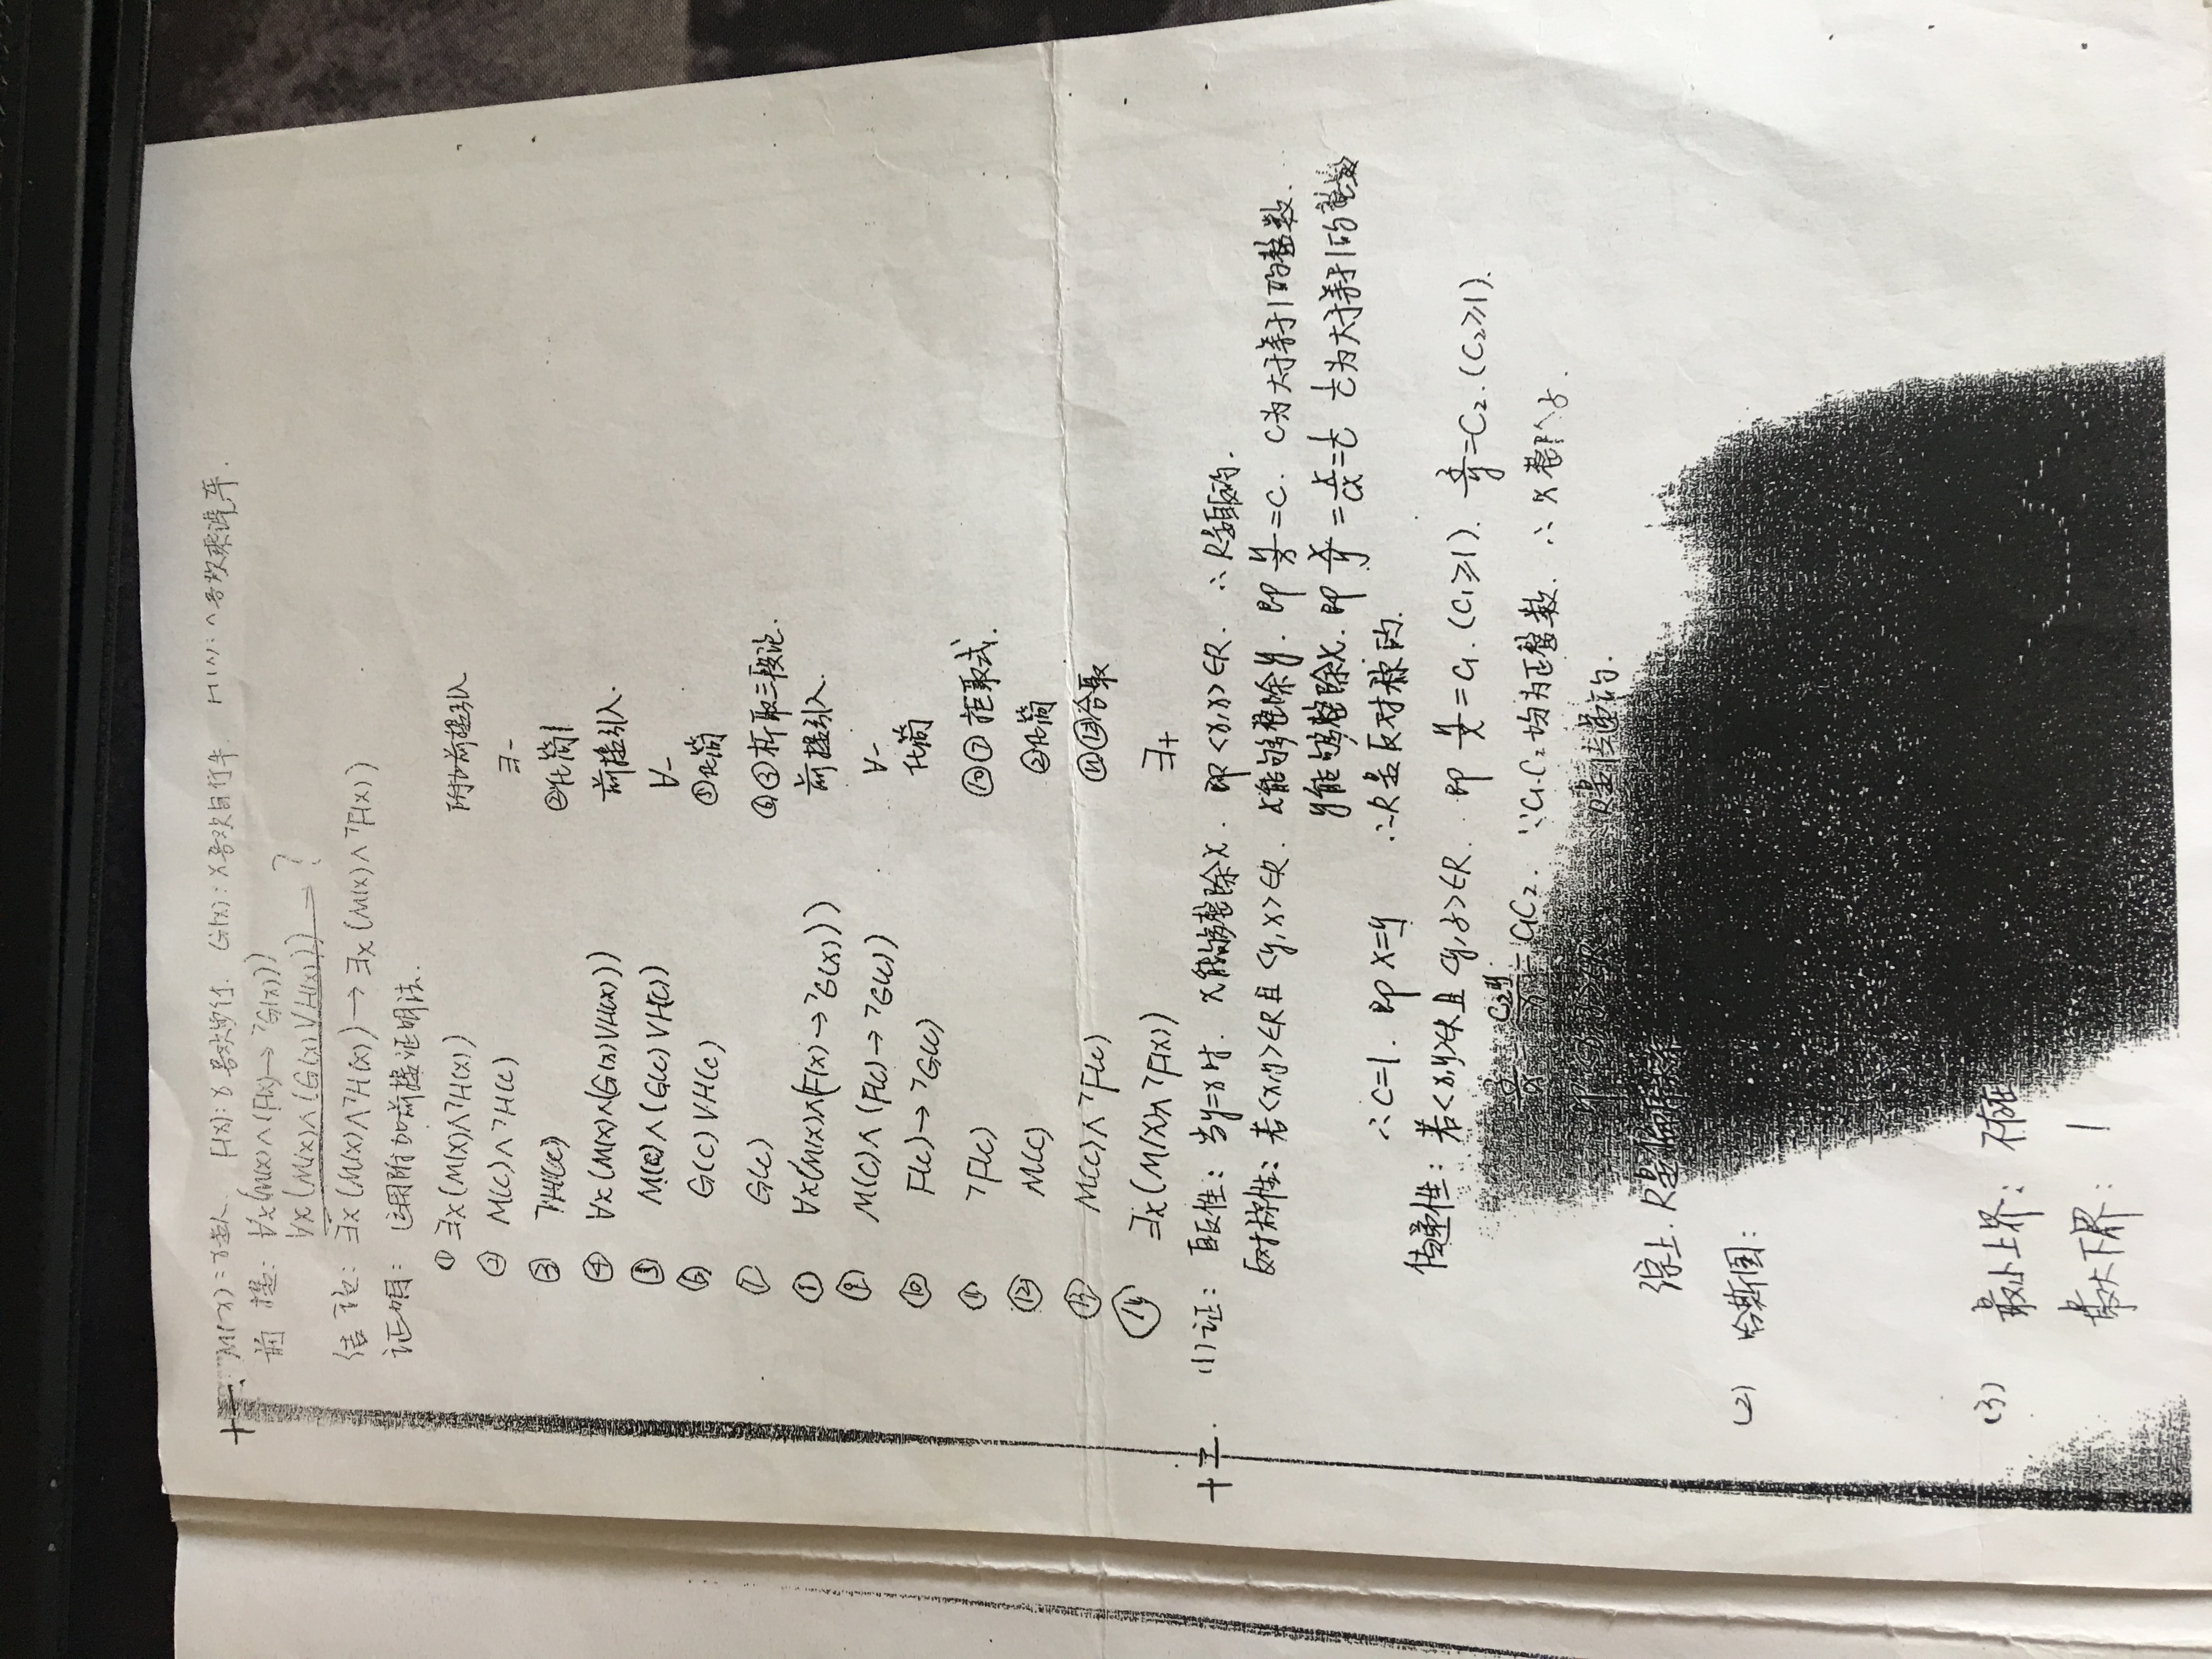 十一. M(x)=x是人. F(x): x喜欢步行. G(x): x喜欢自行车 H(x): x喜欢乘汽车.
前提: ∀x(M(x)∧(F(x)→¬G(x)))
∀x(M(x)∧(G(x)∨H(x))) → ?
结论: ∃x(M(x)∧¬H(x))→∃x(M(x)∧¬F(x))
证明: 运用附加前提证明法.
① ∃x(M(x)∧¬H(x)) 附加前提引入
② M(c)∧¬H(c) ∃-
③ ¬H(c) ②化简
④ ∀x(M(x)∧(G(x)∨H(x))) 前提引入.
⑤ M(c)∧(G(c)∨H(c)) ∀-
⑥ G(c)∨H(c) ⑤化简
⑦ G(c) ⑥③析取三段论.
⑧ ∀x(M(x)∧(F(x)→¬G(x))) 前提引入.
⑨ M(c)∧(F(c)→¬G(c)) ∀-
⑩ F(c)→¬G(c) 化简
⑪ ¬F(c) ⑩⑦拒取式.
⑫ M(c) ②化简
⑬ M(c)∧¬F(c) ⑪⑫合取
⑭ ∃x(M(x)∧¬F(x)) ∃+
十二. (1)证: 自反性: 当y=x时. x能够整除x. 即<x,x>∈R. ∴R是自反的.
反对称性: 若<x,y>∈R且<y,x>∈R. x能够整除y. 即y/x=C. C为大于等于1的整数.
y能够整除x. 即x/y=x/cx=1/c 1/c为大于等于1的整数
∴C=1. 即x=y ∴R是反对称的.
传递性: 若<x,y>∈R且<y,z>∈R. 即y/x=C₁.(C₁≥1). z/y=C₂.(C₂≥1).
z/x=C₂y/x=C₁C₂. ∵C₁.C₂均为正整数. ∴x整除z.
即<x,z>∈R R是传递的.
综上. R是偏序关系
(2) 哈斯图:
(3) 最小上界: 不存在
最大下界: 1